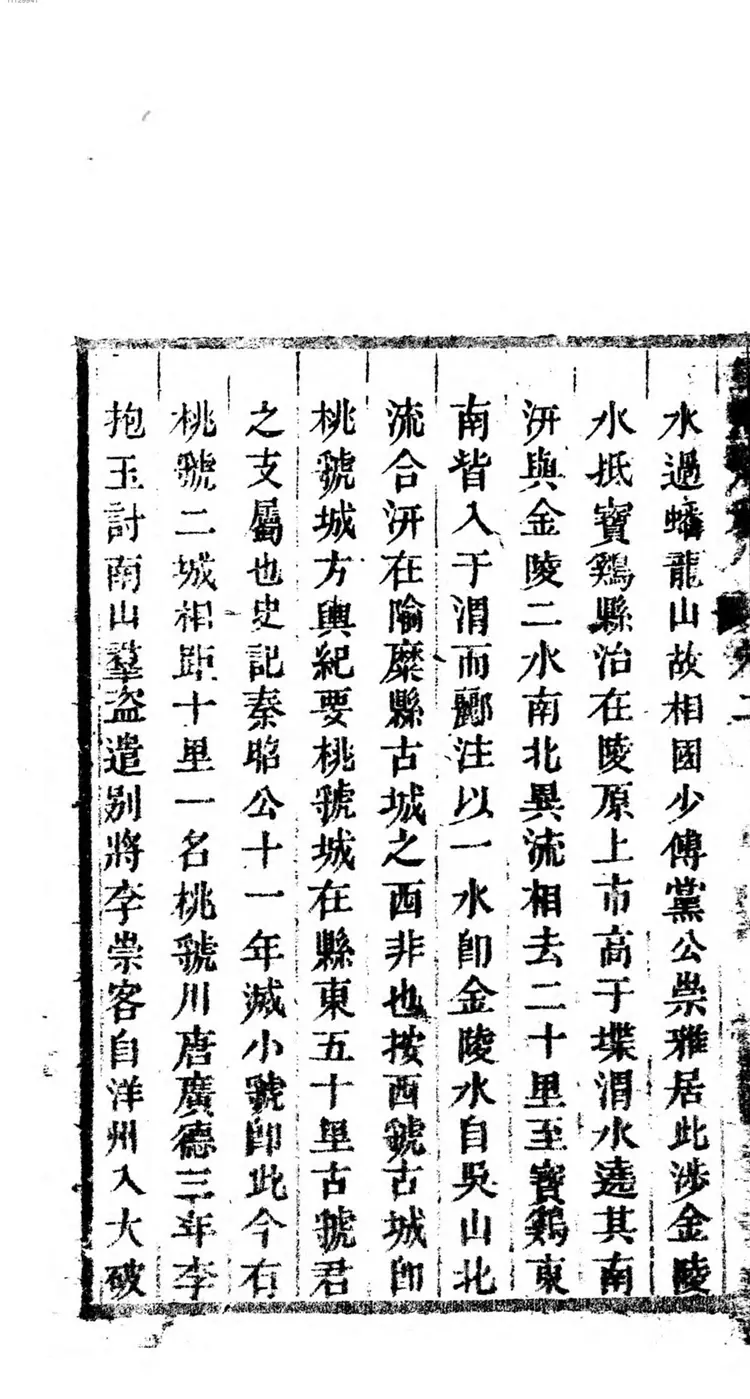 水過蟠龍山故相國少傅黨公崇雅居此渉金陵
水抵寶鷄縣治在陵原上市高于堞渭水遶其南
汧與金陵二水南北異流相去二十里至寶鷄東
南皆入于渭而酈注以一水卽金陵水自吳山北
流合汧在隃糜縣古城之西非也按西虢古城卽
桃虢城方輿紀要桃虢城在縣東五十里古虢君
之支屬也史記秦昭公十一年滅小虢卽此今有
桃虢二城相距十里一名桃虢川唐廣德三年李
抱玉討南山羣盜遣别將李崇客自洋州入大破